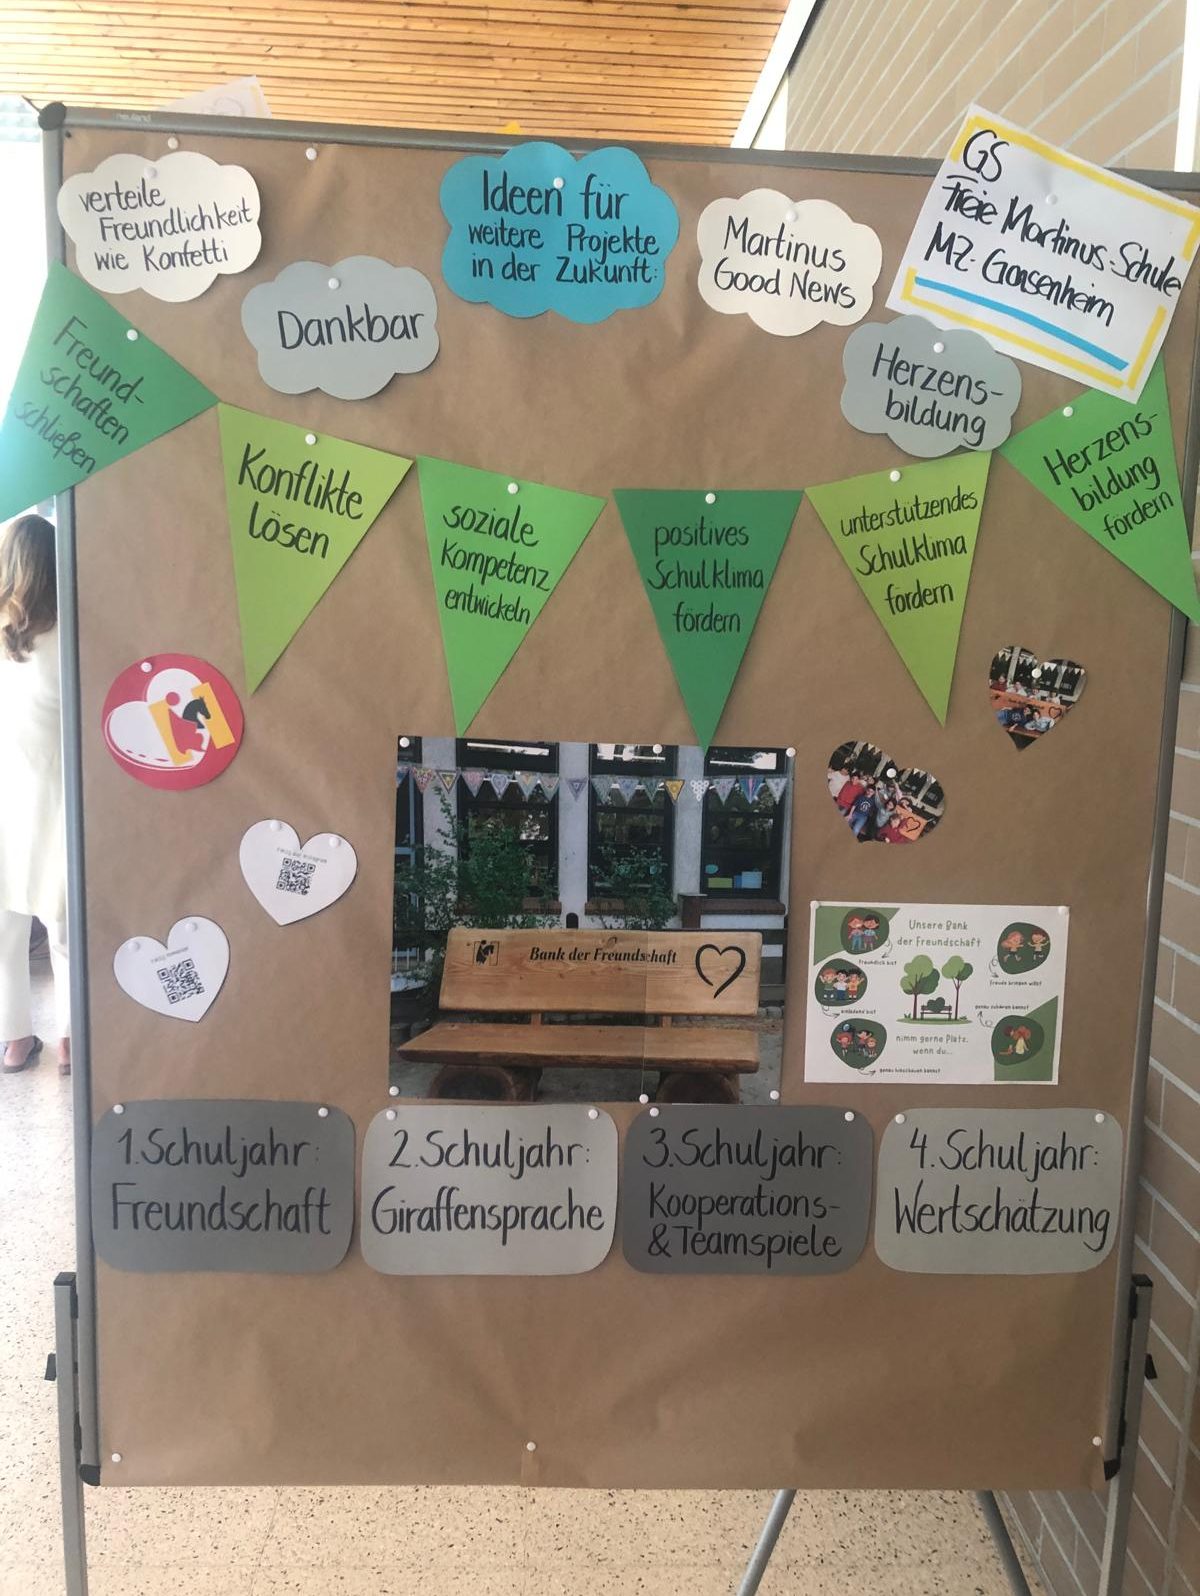 neuland
verteile
Freundlichkeit
wie Konfetti
Dankbar
Ideen für
weitere Projekte
in der Zukunft:
Martinus
Good News
GS
Freie Martinus-Schule
MZ-Gonsenheim
Herzens-
bildung
Freund-
schaften
schließen
Konflikte
lösen
soziale
Kompetenz
entwickeln
positives
Schulklima
fördern
unterstützendes
Schulklima
fördern
Herzens-
bildung
fördern
Bank der Freundschaft
Unsere Bank
der Freundschaft
freundlich bist
Freude bringen willst
einladend bist
genau zuhören kannst
nimm gerne Platz,
wenn du...
genau hinschauen kannst
1. Schuljahr:
Freundschaft
2. Schuljahr:
Giraffensprache
3. Schuljahr:
Kooperations-
& Teamspiele
4. Schuljahr:
Wertschätzung